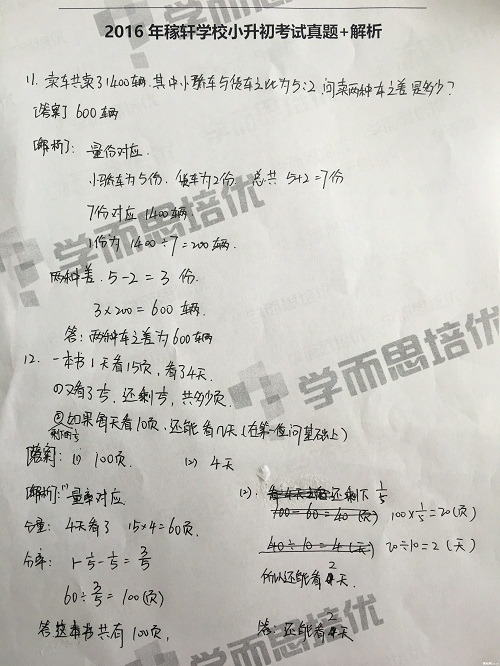 2016年稼轩学校小升初考试真题+解析
11. 卖车共卖了1400辆. 其中小轿车与货车之比为5:2. 问卖两种车之差是多少?
[答案] 600辆
[解析]: 量份对应.
小轿车为5份. 货车为2份. 总共 5+2=7份
7份对应 1400辆
1份为 1400÷7=200辆.
两种差. 5-2=3 份.
3×200=600辆.
答: 两种车之差为600辆
12. 一本书1天看15页, 看了4天.
(1)又看了1/5, 还剩1/5, 共多少页.
②如果每天看10页, 还能看几天 (在第一个问基础上)
剩下的1/5
[答案]: (1) 100页. (2) 4天
[解析]: (1) 量率对应
分量: 4天看了 15×4=60页.
分率: 1-1/5-1/5=3/5
60÷3/5=100(页)
答: 这本书共有100页.
(2). 还剩下 1/5
100-60=40(页) 100×1/5=20(页)
40÷10=4(天) 20÷10=2(天)
所以还能看2天.
答: 还能看2天
学而思培优
学而思培优
学而思培优